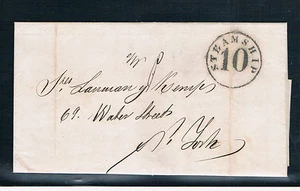 STEAMSHIP
10
Sres Lanman y Kemp
69. Water Street
N. York